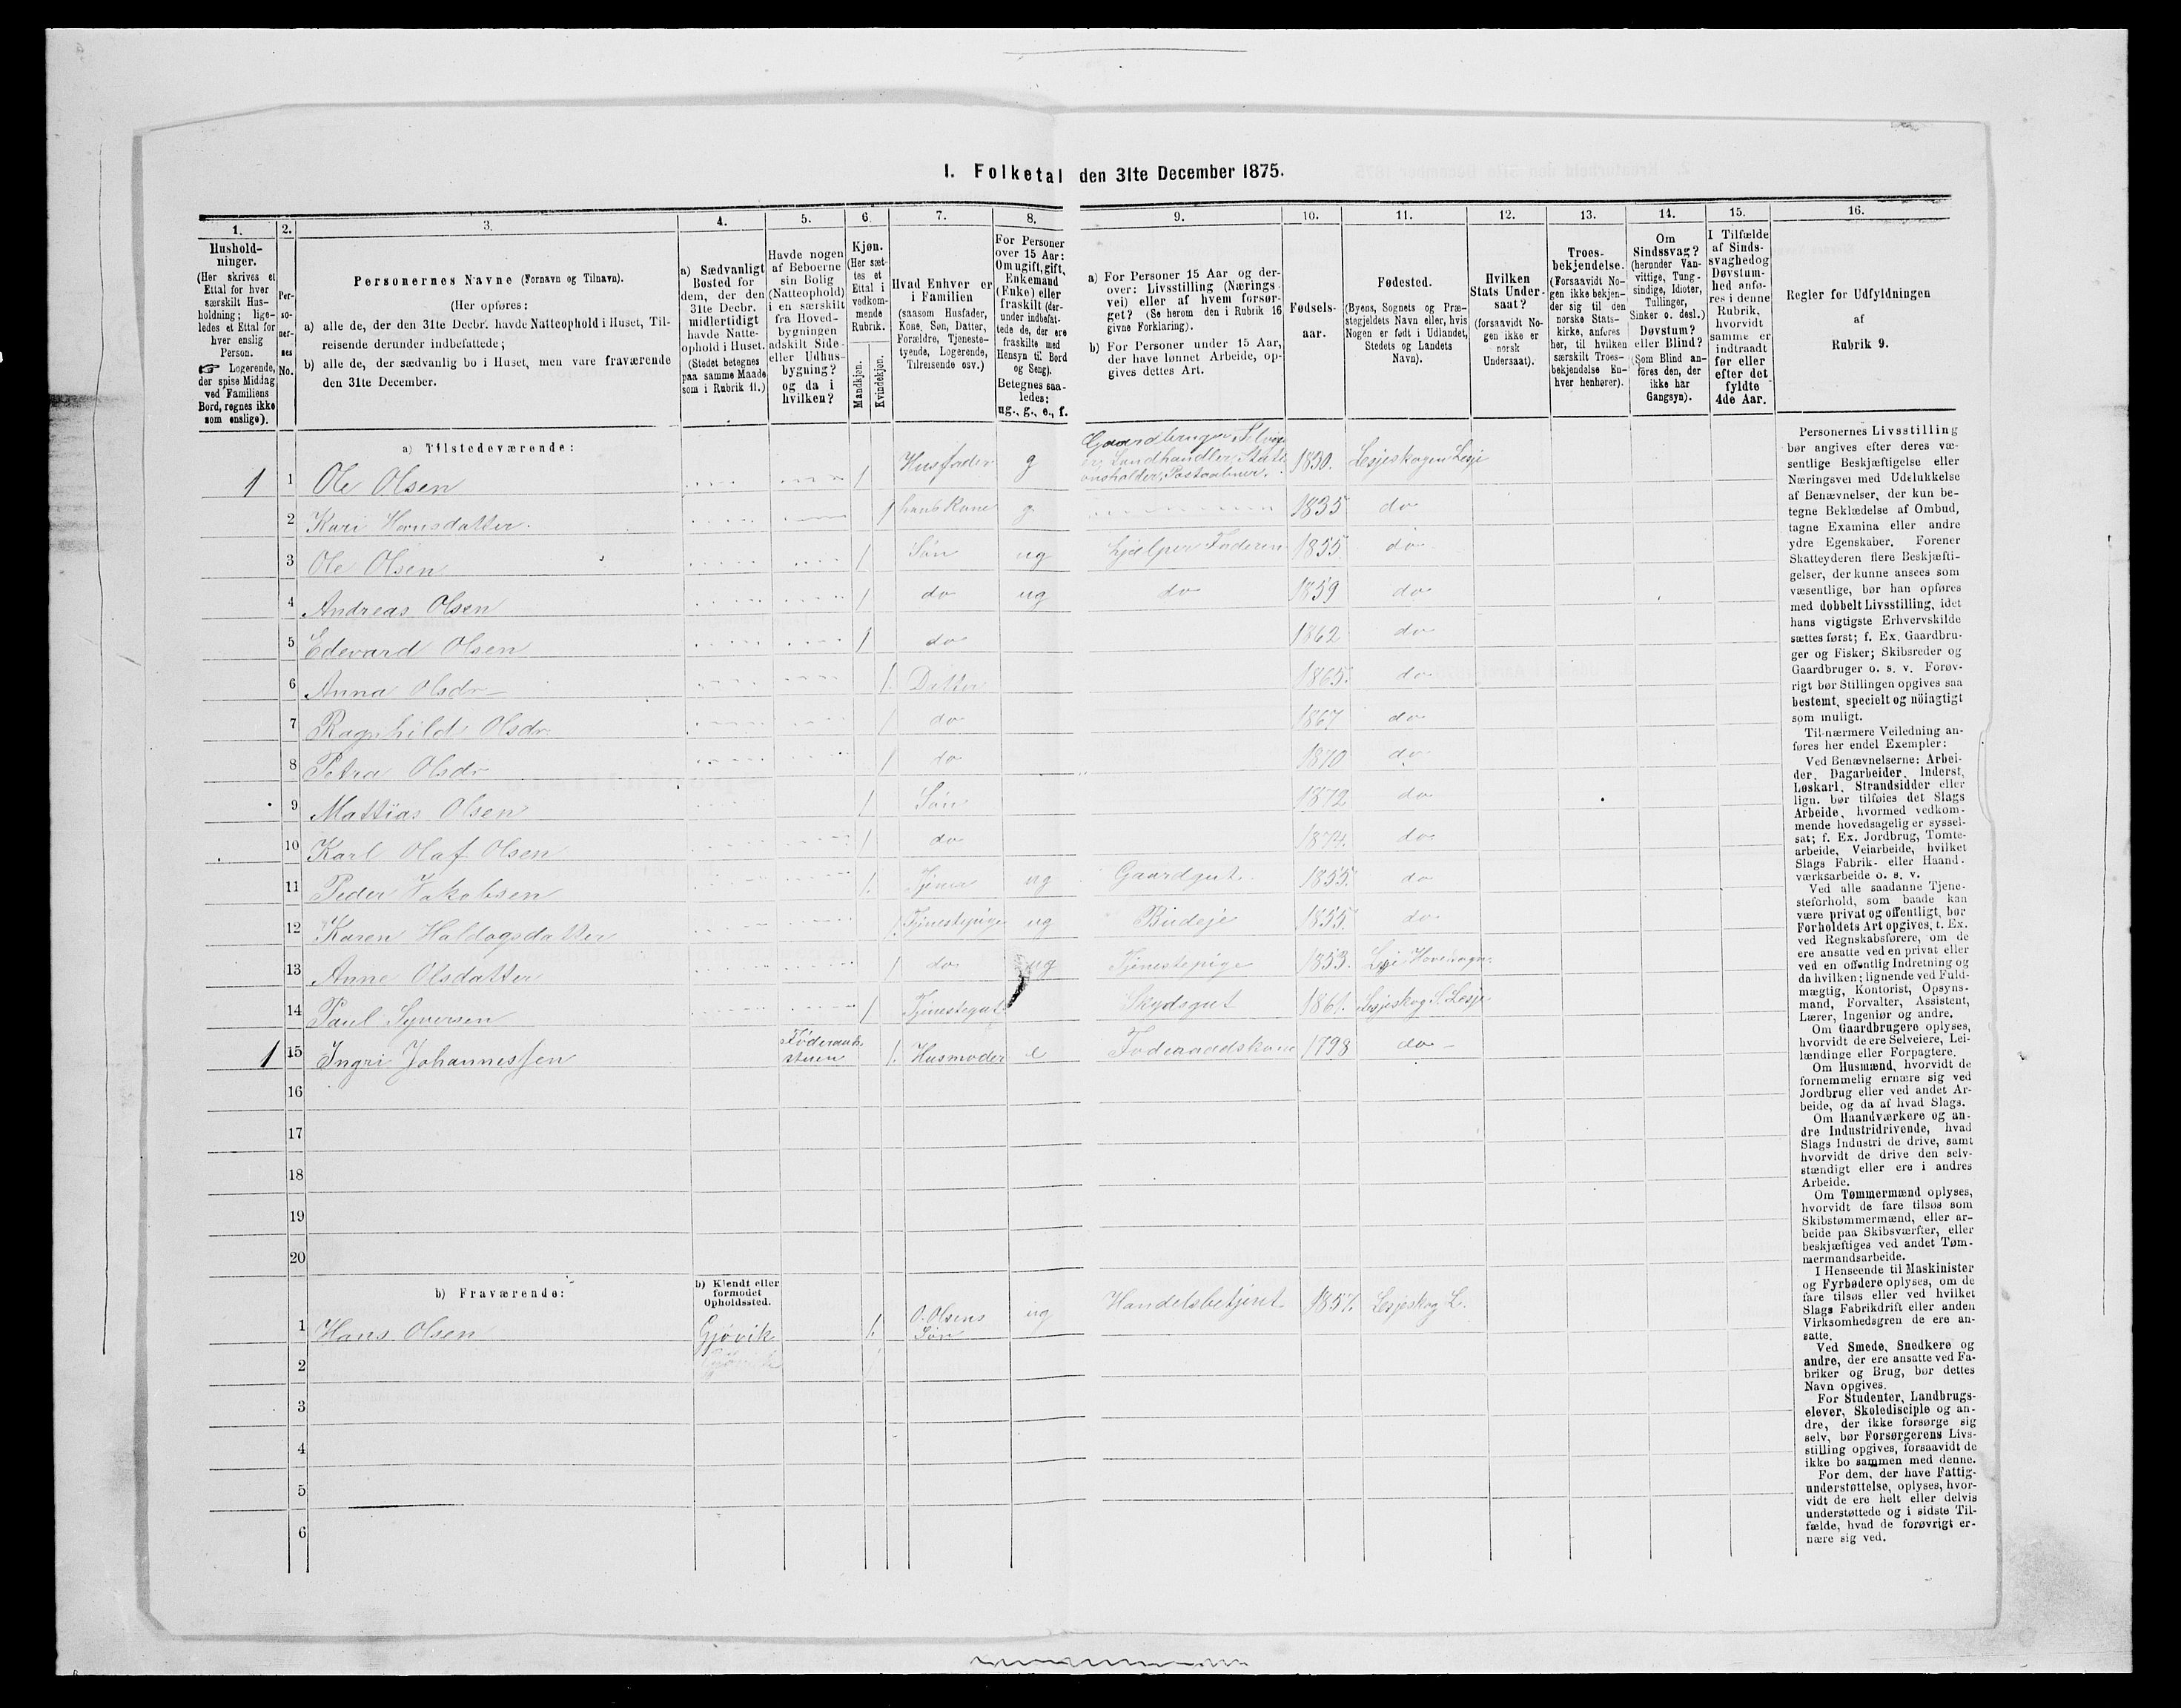 I. Folketal den 31te December 1875.
1. 2. 3. 4. 5. 6. 7. 8. 9. 10. 11. 12. 13. 14. 15. 16.
Hushold-
ninger.
(Her skrives et
Ettal for hver
særskilt Hus-
holdning; lige-
ledes et Ettal for
hver enslig
Person.
☞ Logerende,
der spise Middag
ved Familiens
Bord, regnes ikke
som enslige).
Per-
so-
ner-
nes
No.
Personernes Navne (Fornavn og Tilnavn).
(Her opføres:
a) alle de, der den 31te Decbr. havde Natteophold i Huset, Til-
reisende derunder indbefattede;
b) alle de, der sædvanlig bo i Huset, men vare fraværende
den 31te December.
a) Sædvanligt
Bosted for
dem, der den
31te Decbr.
midlertidigt
havde Natte-
ophold i Huset.
(Stedet betegnes
paa samme Maade
som i Rubrik 11.)
Havde nogen
af Beboerne
sin Bolig
(Natteophold)
i en særskilt
fra Hoved-
bygningen
adskilt Side-
eller Udhus-
bygning?
og da i
hvilken?
Kjøn.
(Her sæt-
tes et
Ettal i
vedkom-
mende
Rubrik.
Mandkjøn.
Kvindekjøn.
Hvad Enhver er
i Familien
(saasom Husfader,
Kone, Søn, Datter,
Forældre, Tjeneste-
tyende, Logerende,
Tilreisende osv.)
For Personer
over 15 Aar:
Om ugift, gift,
Enkemand
(Enke) eller
fraskilt (der-
under indbefat-
tede de, der ere
fraskilte med
Hensyn til Bord
og Seng).
Betegnes saa-
ledes:
ug., g., e., f.
a) For Personer 15 Aar og der-
over: Livsstilling (Nærings-
vei) eller af hvem forsør-
get? (Se herom den i Rubrik 16
givne Forklaring).
b) For Personer under 15 Aar,
der have lønnet Arbeide, op-
gives dettes Art.
Fødsels-
aar.
Fødested.
(Byens, Sognets og Præ-
stegjeldets Navn eller, hvis
Nogen er født i Udlandet,
Stedets og Landets
Navn).
Hvilken
Stats Under-
saat?
(forsaavidt No-
gen ikke er
norsk
Undersaat).
Troes-
bekjendelse.
(Forsaavidt No-
gen ikke bekjen-
der sig til den
norske Stats-
kirke, anføres
her, til hvilken
særskilt Troes-
bekjendelse En-
hver henhører).
Om
Sindssvag?
(herunder Van-
vittige, Tung-
sindige, Idioter,
Tullinger,
Sinker o. desl.)
Døvstum?
eller Blind?
(Som Blind an-
føres den, der
ikke har
Gangsyn).
I Tilfælde
af Sinds-
svaghed og
Døvstum-
hed anfø-
res i denne
Rubrik,
hvorvidt
samme er
indtraadt
før eller
efter det
fyldte
4de Aar.
Regler for Udfyldningen
af
Rubrik 9.
a) Tilstedeværende:
1 1 Ole Olsen 1 Husfader g Gaardbruger, Selvei
er, Landhandler, Stati
onsholder, Postaabner. 1830. Lesjeskogen Lesje
2 Kari 1 hans Kone g 1835 do
3 Ole Olsen 1 Søn ug hjælper Faderen 1855. do
4 Andreas Olsen 1 do ug do 1859 do
5 Edevard Olsen 1 do 1862 do
6 Anna Olsdr 1. Datter 1865. do
7 Ragnhild Olsdr 1 do 1867 do
8 Petra Olsdr 1 do 1870 do
9 Mattias Olsen 1 Søn 1872 do
10 Karl Olaf Olsen 1 do 1874. do
11 Peder Jakobsen 1. Tjener ug Gaardgut. 1855. do
12 Karen Haldogsdatter 1. Tjenestepige ug Budeje 1855. do
13 Anne Olsdatter 1 do ug Tjenestepige 1853.
14 Paul Syversen 1 Tjenestegut Skydsgut 1861. Lesjeskog S. Lesje
1 15 Ingri Johannessen Føderaads
stuen 1. Husmoder e Føderaadskone 1798 do
16
17
18
19
20
b) Fraværende:
b) Kjendt eller
formodet
Opholdssted.
1 Hans Olsen Gjøvik 1. O. Olsens
Søn ug Handelsbetjent. 1857. Lesjeskog L.
2
3
4
5
6
Personernes Livsstilling
bør angives efter deres væ-
sentlige Beskjæftigelse eller
Næringsvei med Udelukkelse
af Benævnelser, der kun be-
tegne Beklædelse af Ombud,
tagne Examina eller andre
ydre Egenskaber. Forener
Skatteyderen flere Beskjæfti-
gelser, der kunne ansees som
væsentlige, bør han opføres
med dobbelt Livsstilling, idet
hans vigtigste Erhvervskilde
sættes først; f. Ex. Gaardbru-
ger og Fisker; Skibsreder og
Gaardbruger o. s. v. Forøv-
rigt bør Stillingen opgives saa
bestemt, specielt og nöiagtigt
som muligt.
Til nærmere Veiledning an-
føres her endel Exempler:
Ved Benævnelserne: Arbei-
der, Dagarbeider, Inderst,
Løskarl, Strandsidder eller
lign. bør tilføies det Slags
Arbeide, hvormed vedkom-
mende hovedsagelig er syssel-
sat; f. Ex. Jordbrug, Tomte-
arbeide, Veiarbeide, hvilket
Slags Fabrik- eller Haand-
værksarbeide o. s. v.
Ved alle saadanne Tjene-
steforhold, som baade kan
være privat og offentligt, bør
Forholdets Art opgives, t. Ex.
ved Regnskabsførere, om de
ere ansatte ved en privat eller
ved en offentlig Indretning og
da hvilken; lignende ved Fuld-
mægtig, Kontorist, Opsyns-
mand, Forvalter, Assistent,
Lærer, Ingeniør og andre.
Om Gaardbrugere oplyses,
hvorvidt de ere Selveiere, Lei-
lændinge eller Forpagtere.
Om Husmænd, hvorvidt de
fornemmelig ernære sig ved
Jordbrug eller ved andet Ar-
beide, og da af hvad Slags.
Om Haandværkere og an-
dre Industridrivende, hvad
Slags Industri de drive, samt
hvorvidt de drive den selv-
stændigt eller ere i andres
Arbeide.
Om Tømmermænd oplyses,
hvorvidt de fare tilsøs som
Skibstømmermænd, eller ar-
beide paa Skibsværfter, eller
beskjæftiges ved andet Tøm-
mermandsarbeide.
I Henseende til Maskinister
og Fyrbødere oplyses, om de
fare tilsøs eller ved hvilket
Slags Fabrikdrift eller anden
Virksomhedsgren de ere an-
satte.
Ved Smede, Snedkere og
andre, der ere ansatte ved Fa-
briker og Brug, bør dettes
Navn opgives.
For Studenter, Landbrugs-
elever, Skoledisciple og an-
dre, der ikke forsørge sig
selv, bør Forsørgerens Livs-
stilling opgives, forsaavidt de
ikke bo sammen med denne.
For dem, der have Fattig-
understøttelse, oplyses, hvor-
vidt de ere helt eller delvis
understøttede og i sidste Til-
fælde, hvad de forøvrigt er-
nære sig ved.